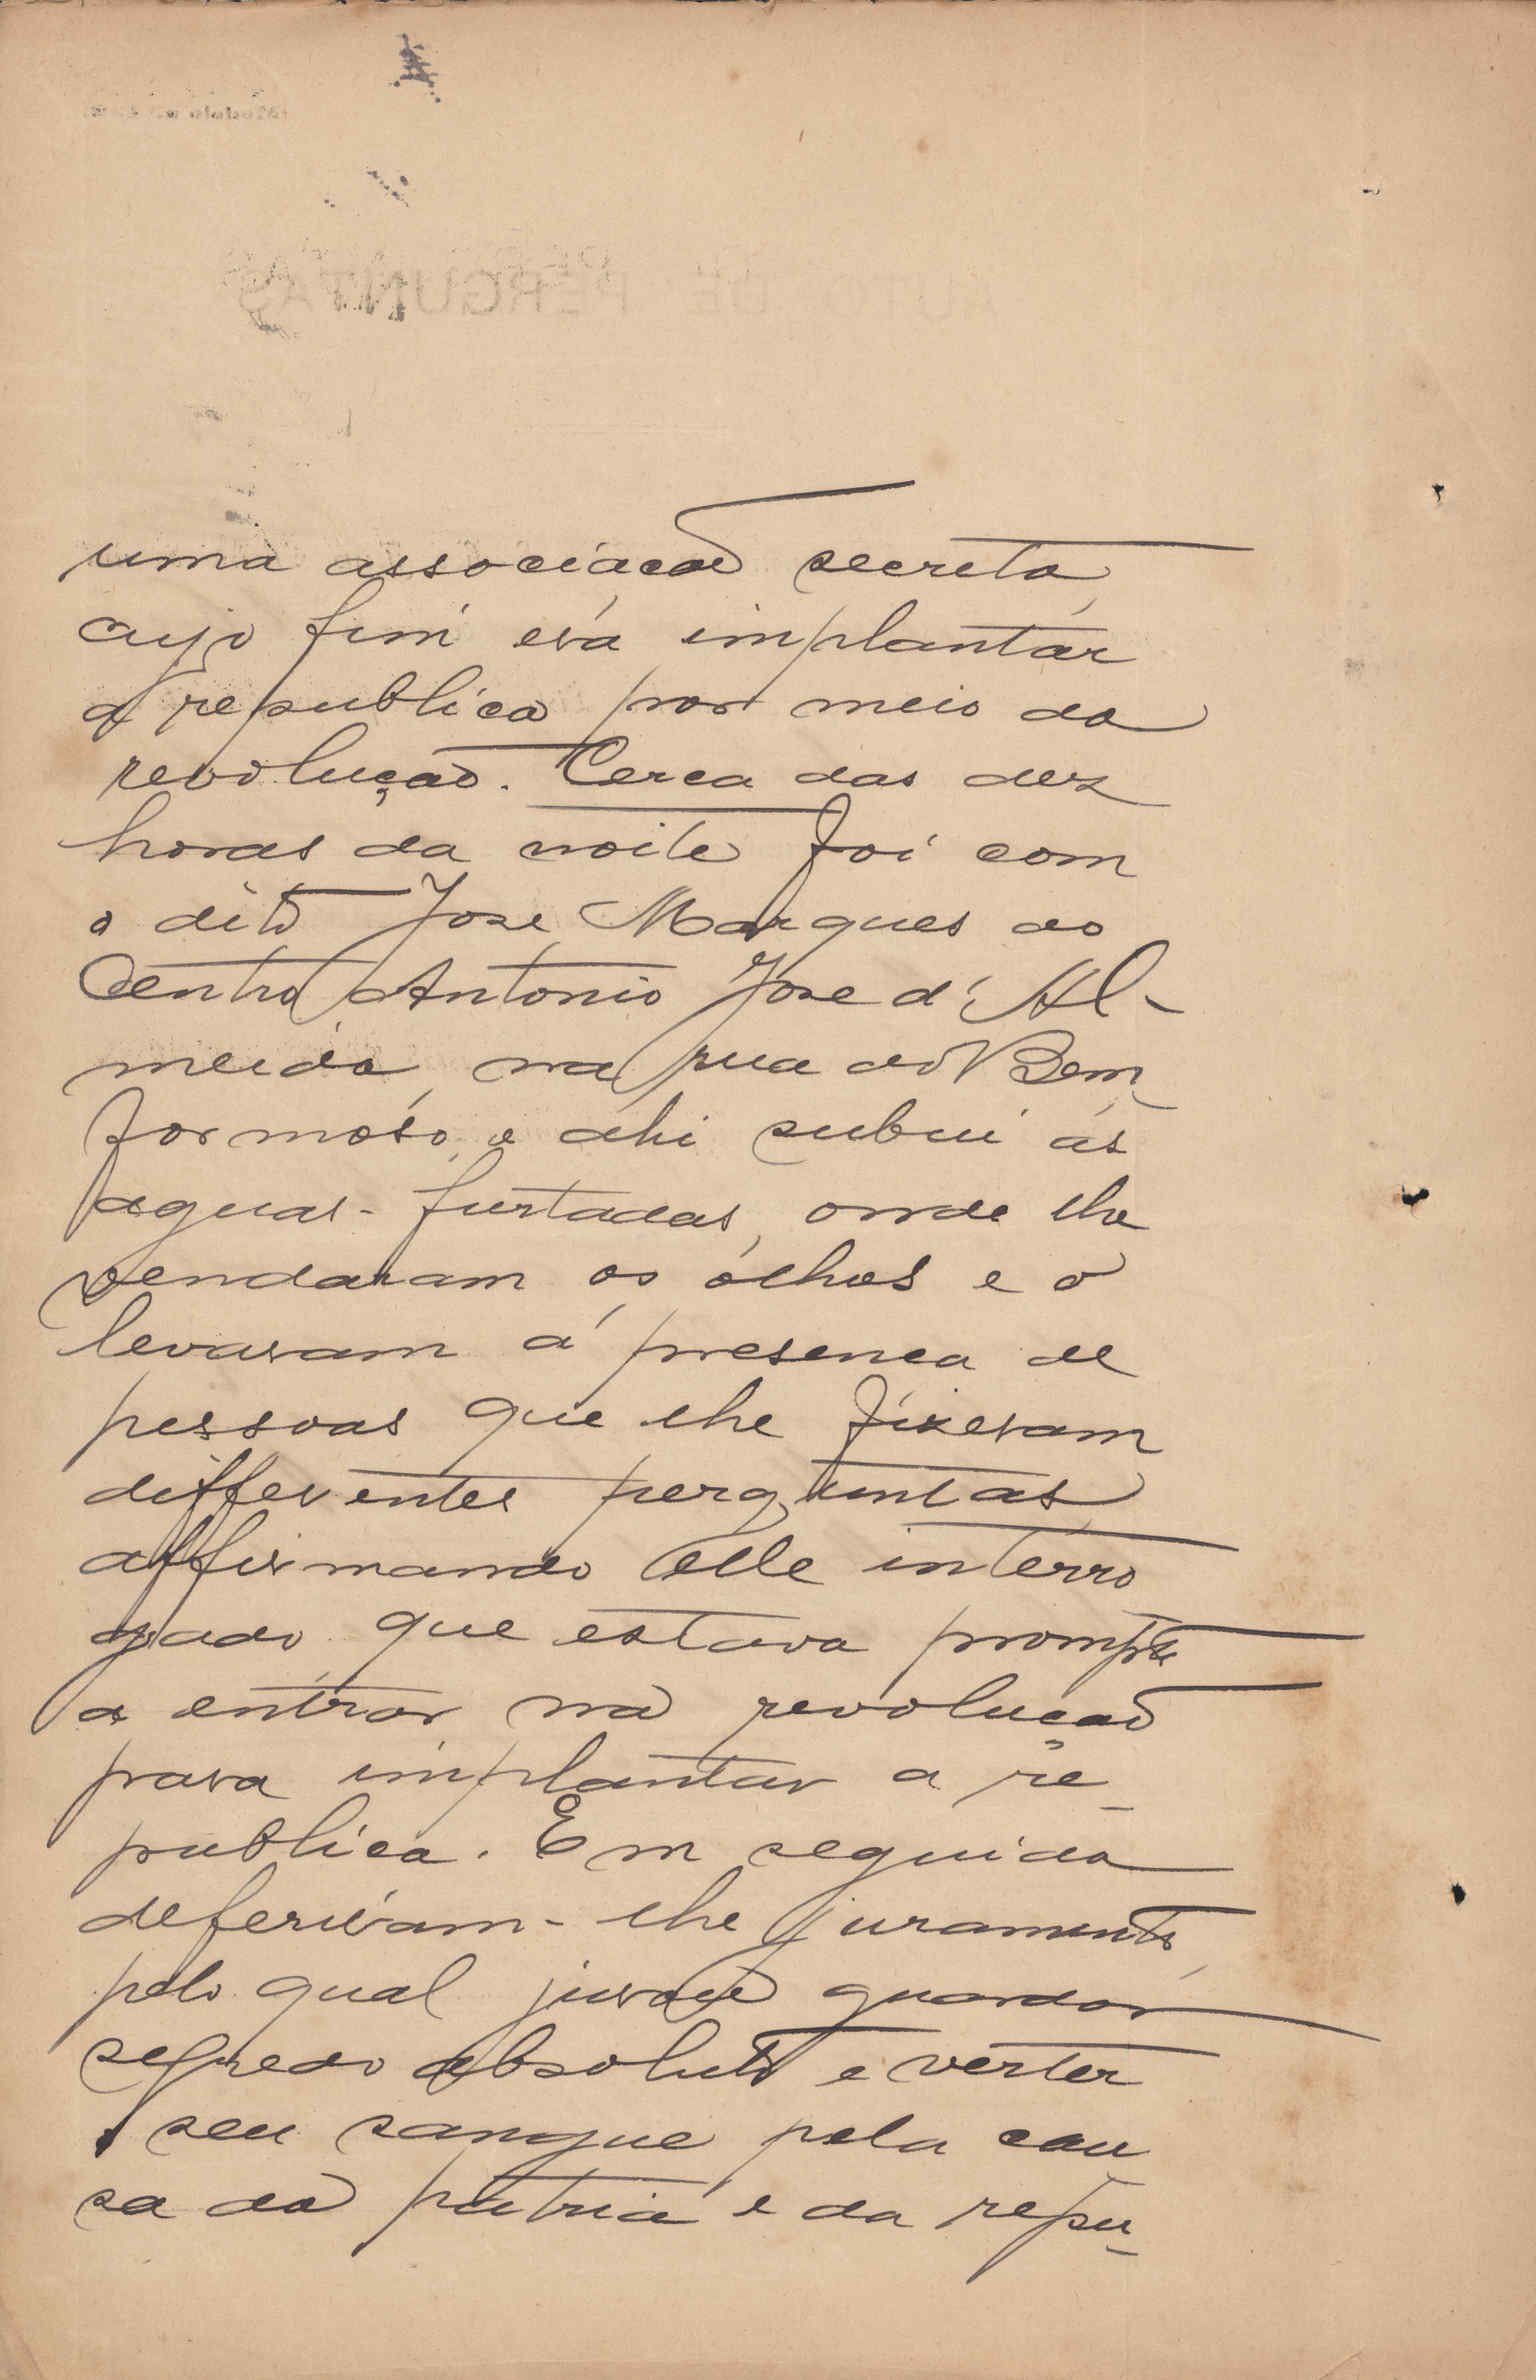 uma associação secreta,
cujo fim era implantar
a republica por meio da
revolução. Cerca das dez
horas da noite foi com
o dito José Marques ao
Centro Antonio José d'Al-
meida, na rua do Bem
formoso, e ahi subiu ás
aguas-furtadas, onde lhe
vendaram os olhos e o
levaram á presença de
pessoas que lhe fizeram
differentes perguntas,
affirmando elle interro
gado que estava prompto
a entrar na revolução
para implantar a re-
publica. Em seguida
deferiram-lhe juramento,
pelo qual jurou guardar
segredo absoluto e verter
o seu sangue pela cau
sa da patria e da repu-